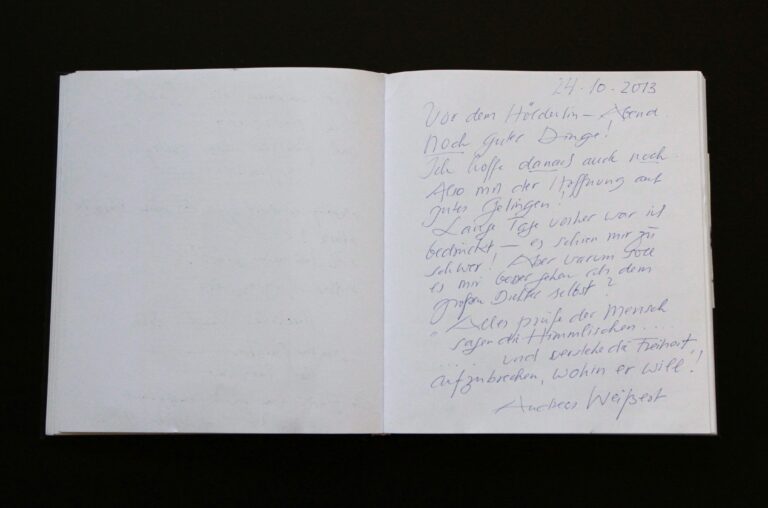 24.10.2013
Vor dem Hölderlin-Abend
noch guter Dinge!
Ich hoffe danach auch noch.
Also mit der Hoffnung auf
gutes Gelingen!
Lange Tage vorher war ich
bedrückt – es schien mir zu
schwer! Aber warum soll
es mir besser gehen als dem
großen Dichter selbst?
"Alles prüfe der Mensch
sagen die Himmlischen....
.... und verstehe die Freiheit
aufzubrechen, wohin er will"!
Andreas Weißert